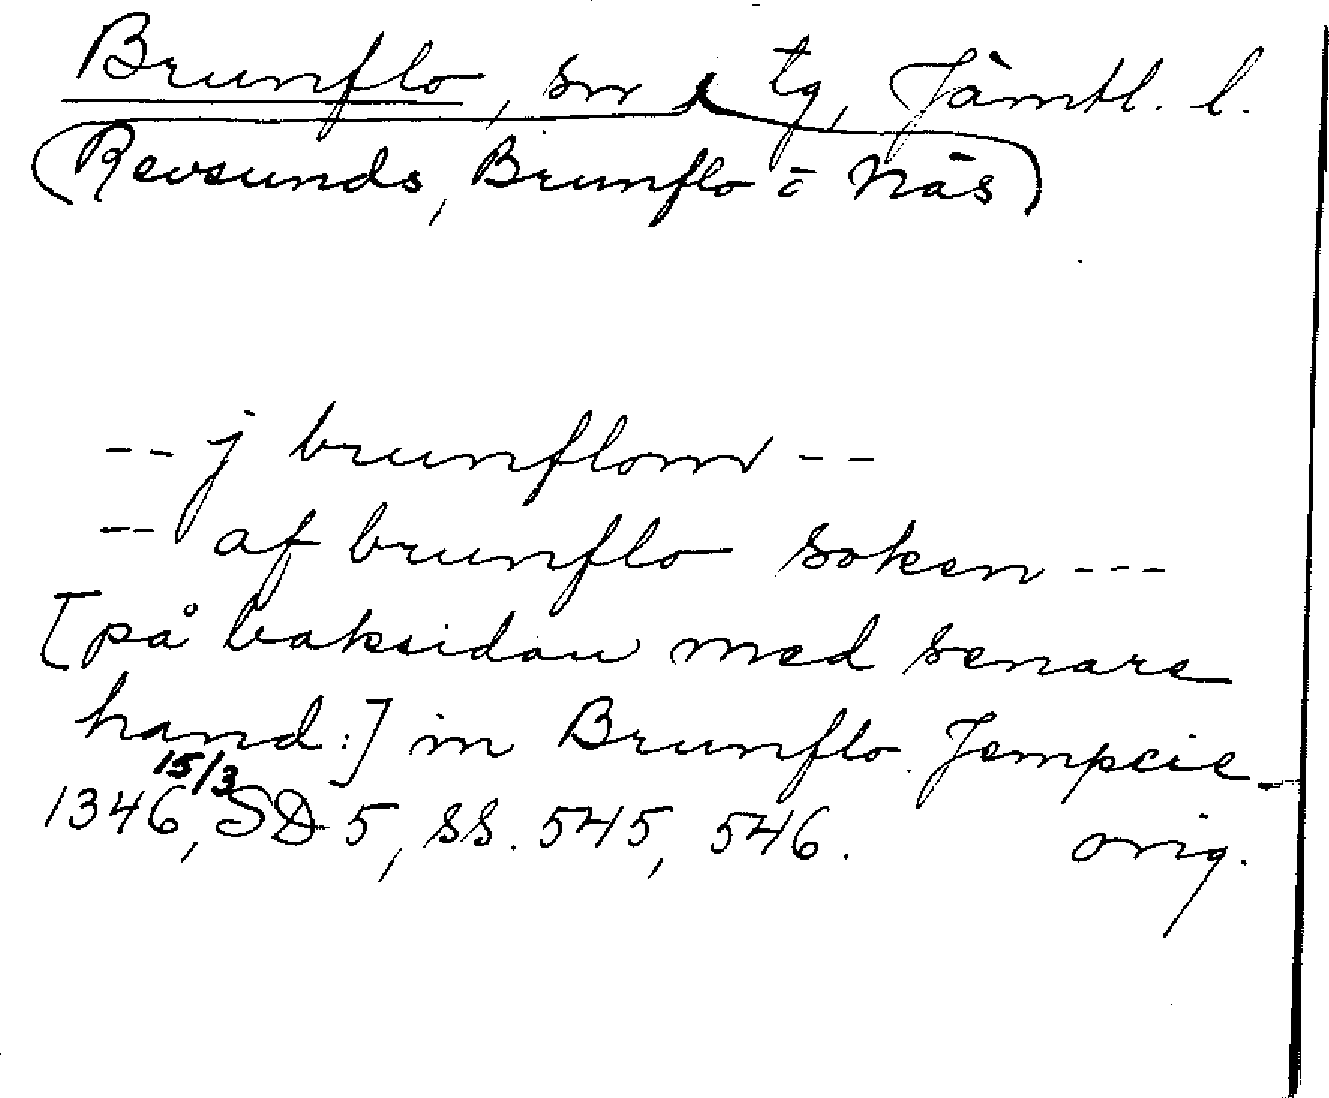 Brunflo, sn, tg, Jämtl. l.
(Revsunds, Brunflo o Näs)
-- j brunflom --
-- af brunflo soken ---
[på baksidan med senare
hand:] in Brunflo Jempcie
15/3
1346, SD 5, ss. 545, 546. orig.